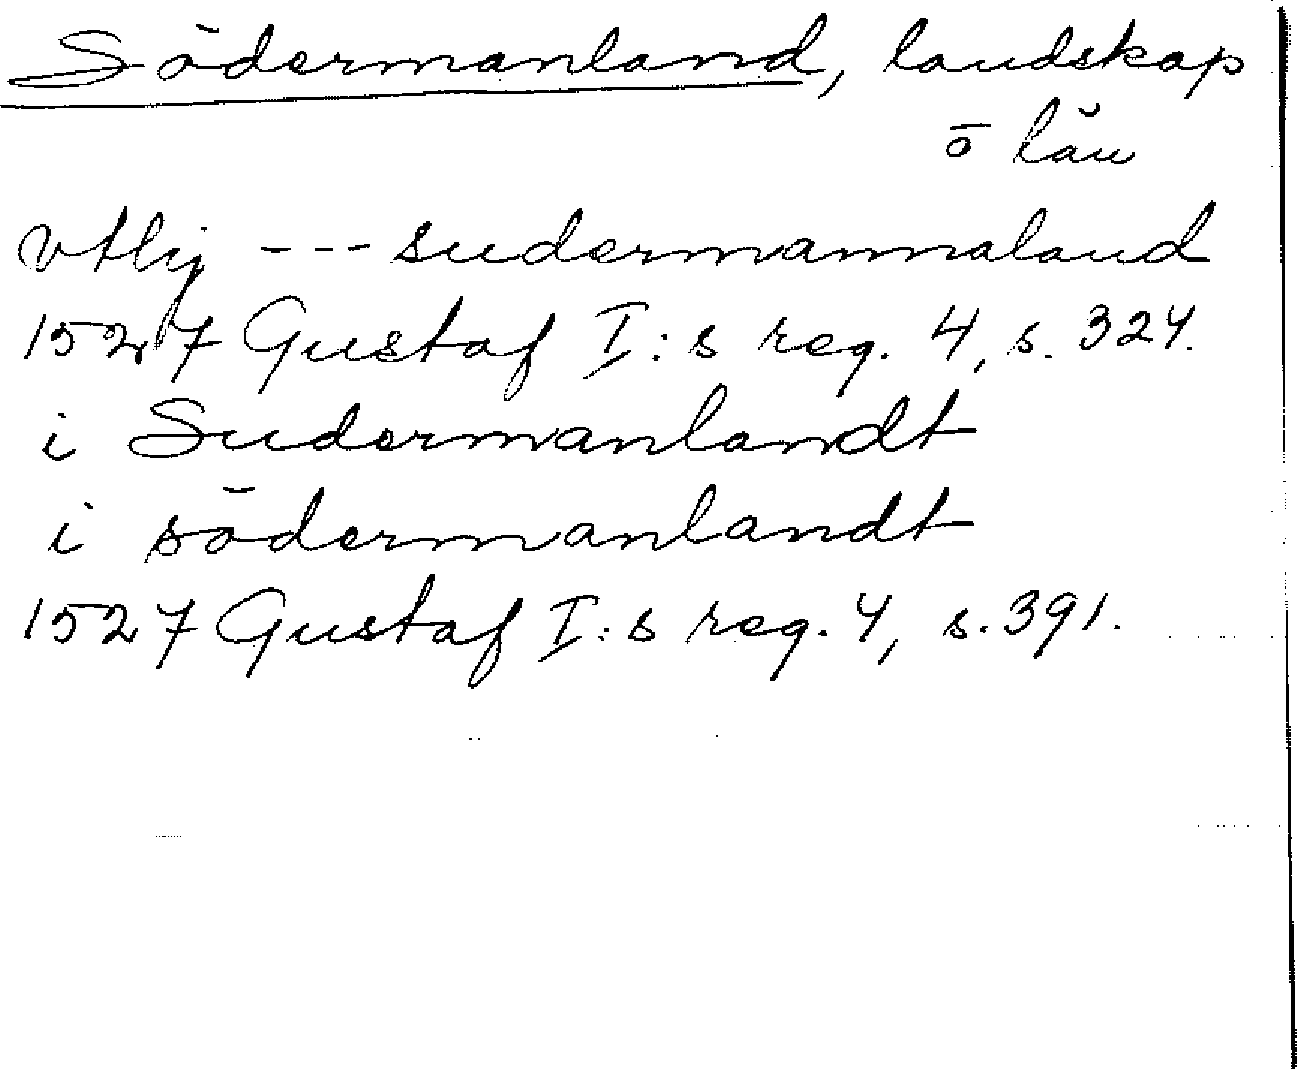 Södermanland, landskap
o län
vtlij --- sudermannaland
1527 Gustaf I:s reg. 4, s. 324.
i Sudermanlandt
i södermanlandt
1527 Gustaf I:s reg. 4, s. 391.